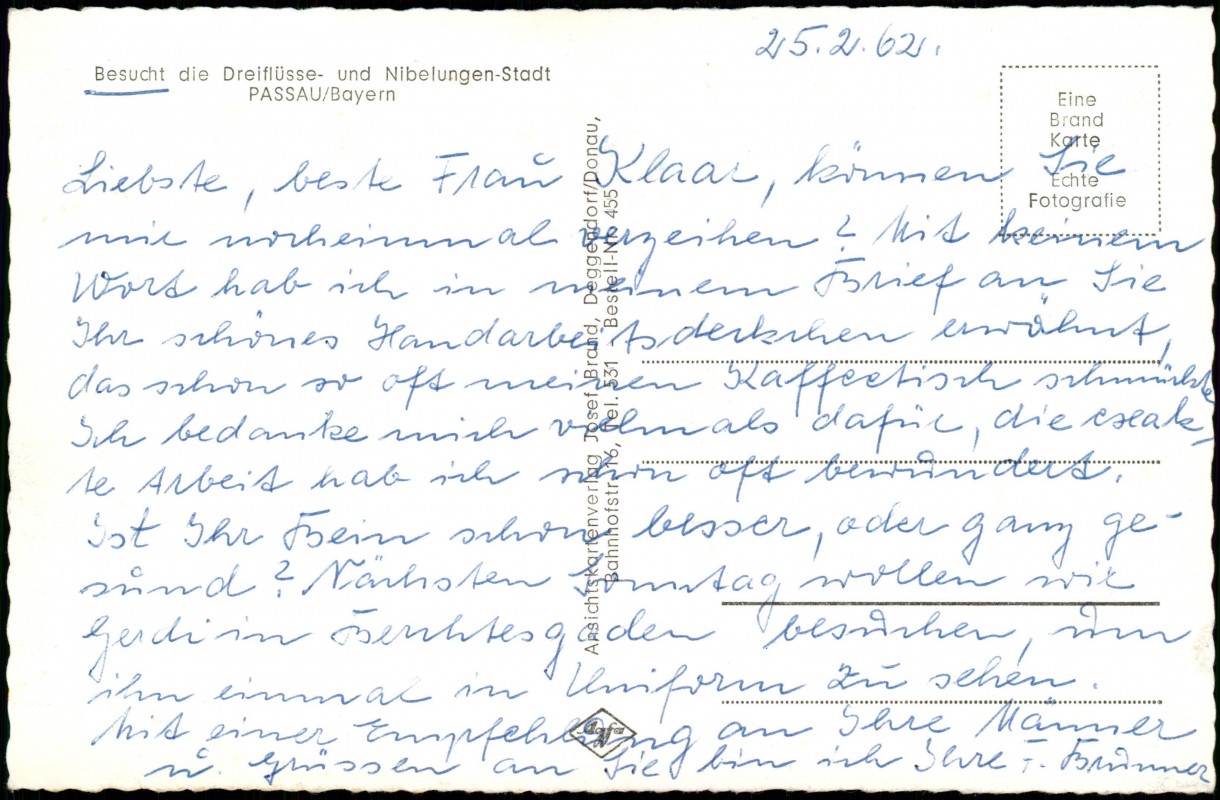 25.2.62.
Besucht die Dreiflüsse- und Nibelungen-Stadt
PASSAU/Bayern
Eine
Brand
Karte
Echte
Fotografie
Liebste, beste Frau Klaar, können Sie
mir nocheinmal verzeihen? Mit keinem
Wort hab ich in meinem Brief an Sie
Ihr schönes Handarbeitsdeckchen erwähnt,
das schon so oft meinen Kaffeetisch schmückte
Ich bedanke mich vielmals dafür, die exak-
te Arbeit hab ich schon oft bewundert.
Ist Ihr Bein schon besser, oder ganz ge-
sund? Nächsten Sonntag wollen wir
Gerdi in Berchtesgaden besuchen, um
ihn einmal in Uniform zu sehen.
Mit einer Empfehlung an Ihre Männer
u. Grüssen an Sie bin ich Ihre F. Brunner
Ansichtskartenverlag Josef Brand, Deggendorf/Donau,
Bahnhofstr. 16, Tel. 531 Bestell-Nr. 455
Agfa